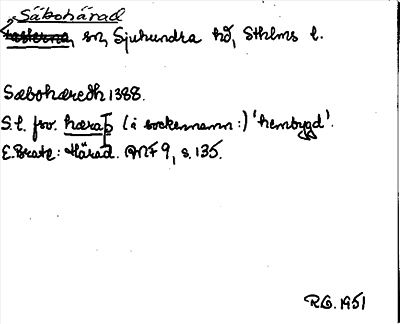 Säbohärad
sn, Sjuhundra hd, Sthlms l.
Sæbohæredh 1388.
S.l. fsv. hæraþ (i sockennamn:) 'hembygd'.
E. Brate: Härad. ANF 9, s. 135.
R.G. 1951